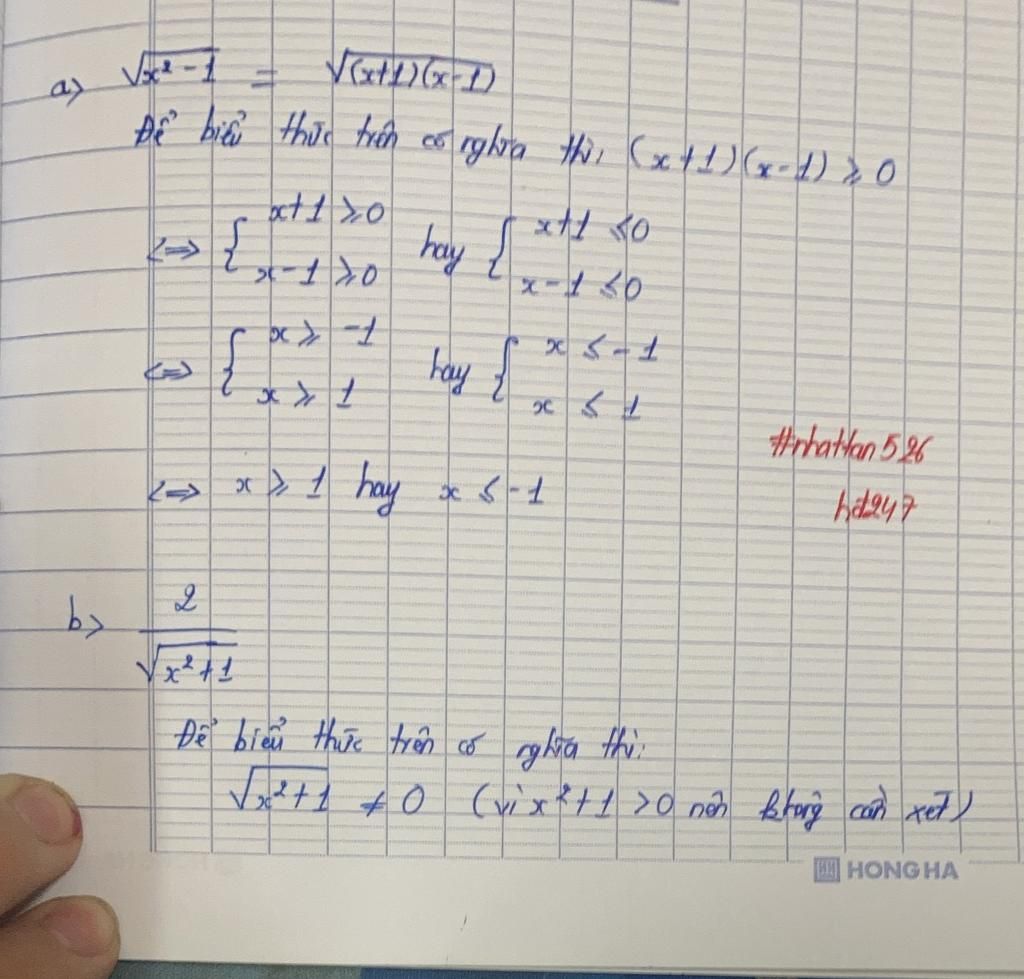 a) √(x² - 1) = √((x+1)(x-1))
Để biểu thức trên có nghĩa thì: (x+1)(x-1) ≥ 0
<=> { x+1 ≥ 0 hay { x+1 ≤ 0
x-1 ≥ 0 x-1 ≤ 0
<=> { x ≥ -1 hay { x ≤ -1
x ≥ 1 x ≤ 1
#nhattan526
<=> x ≥ 1 hay x ≤ -1
hd247
b) 2
√(x²+1)
Để biểu thức trên có nghĩa thì:
√(x²+1) ≠ 0 (vì x²+1 > 0 nên không cần xét)
HONG HA